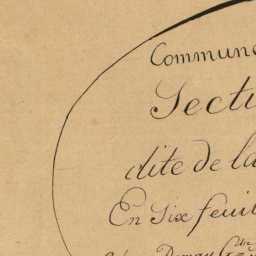 Commune
Secti
dite de la
En Six feuil